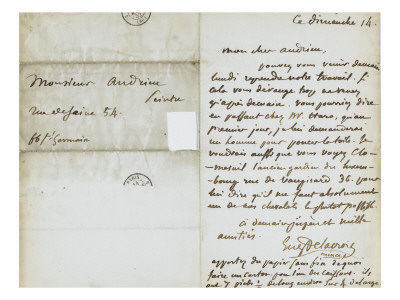 Monsieur Andrieu
Peintre
rue de Seine 54.
fbg St Germain
PARIS
Ce dimanche 14.
mon cher andrieu,
pouvez vous venir demain
lundi reprendre notre travail. Si
cela vous dérange trop ne venez
qu'après demain. vous pourriez dire
en passant chez Mr. Haro, qu'au
premier jour, je lui demanderai
un homme pour poncer la toile. Je
voudrais aussi que vous voyez
ancien gardien du Luxem-
bourg rue de vaugirard 36. pour
lui dire qu'il me faut absolument
un de nos chevalets le plutot possible.
à demain j'espère et mille
amitiés.
EugDelacroix
apportez du papier sans fin de quoi
faire un carton pour l'un des caissons. ils
ont 7 pieds de long environ sur 4 de large